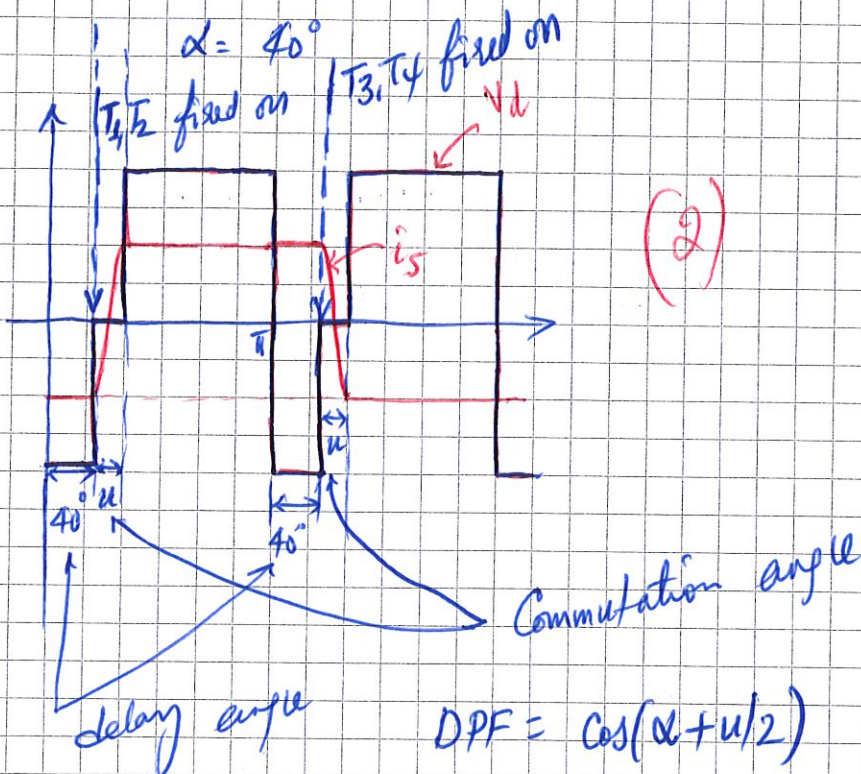 α = 40°
T1,T2 fired on
T3,T4 fired on
Vd
is
(2)
π
u
40° u
40°
Commutation angle
delay angle
DPF = Cos(α+u/2)